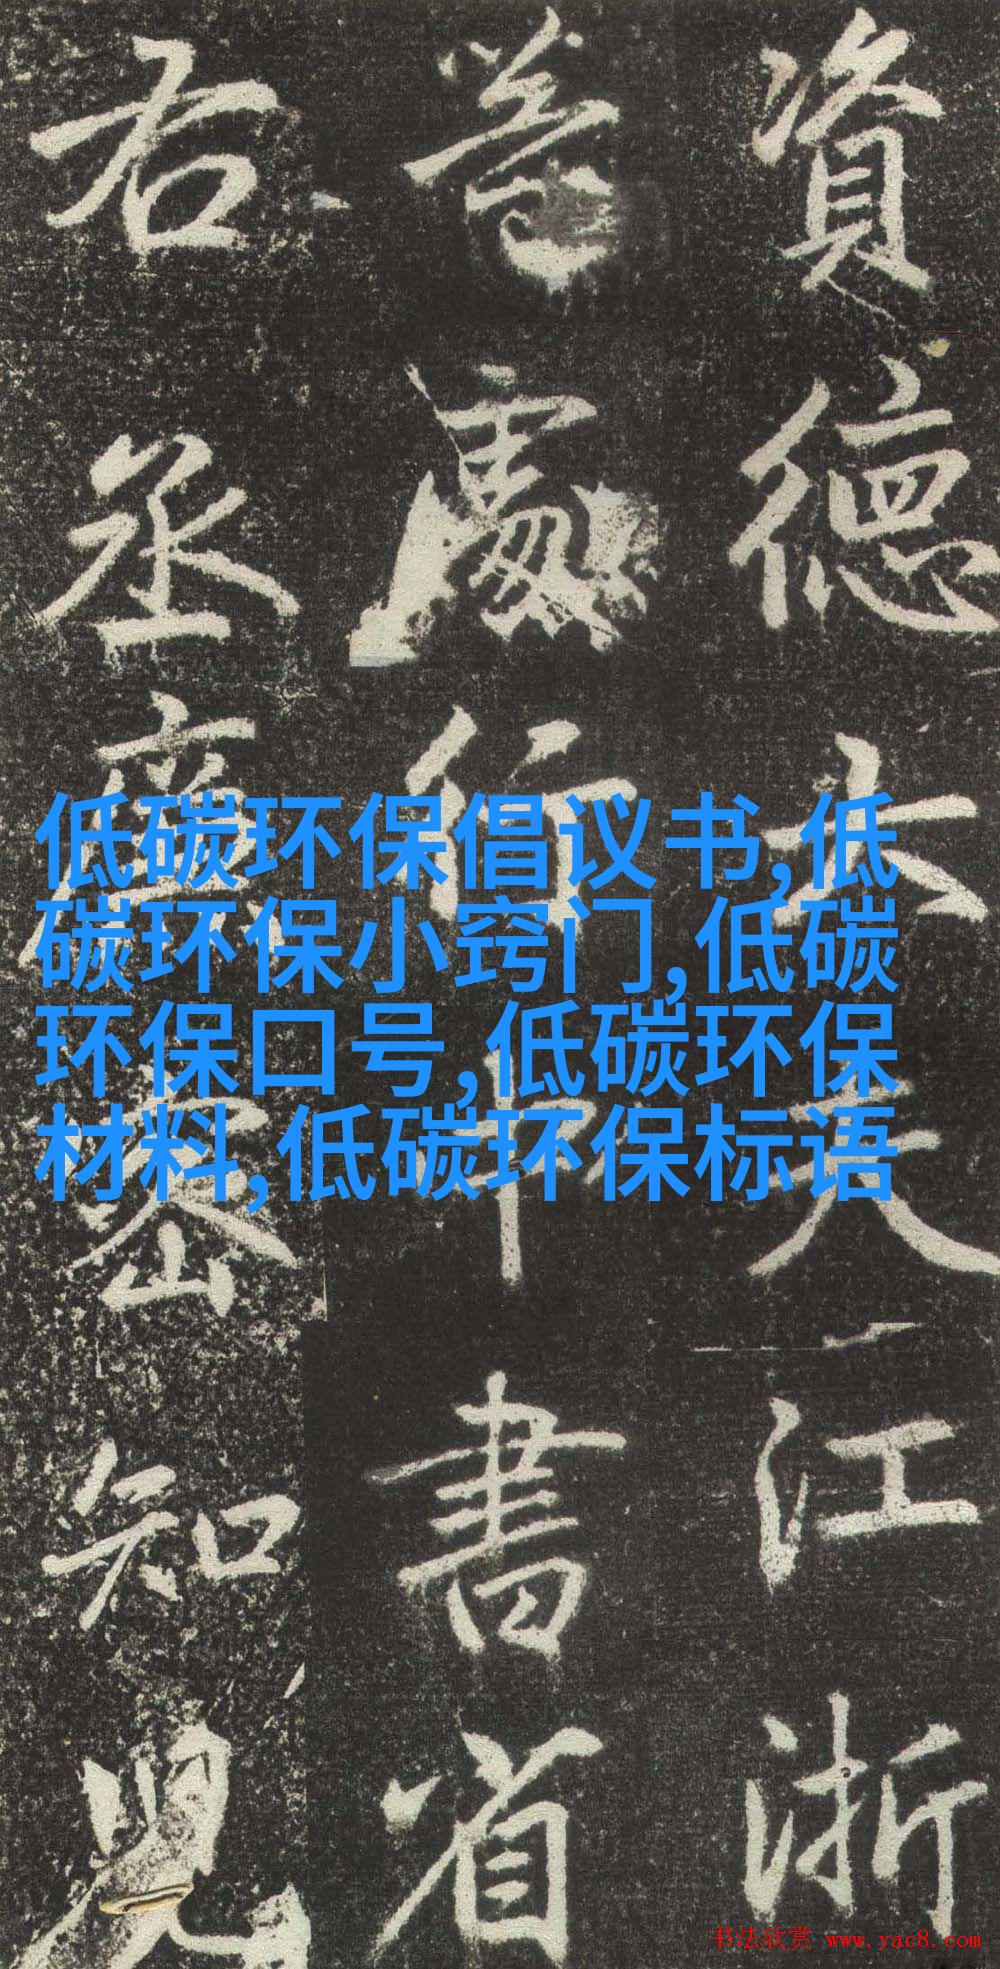 資德大夫江浙
等處行中書省
右丞
知
低碳环保倡议书,低
碳环保小窍门,低碳
环保口号,低碳环保
材料,低碳环保标语
书法欣赏 www.yac8.com